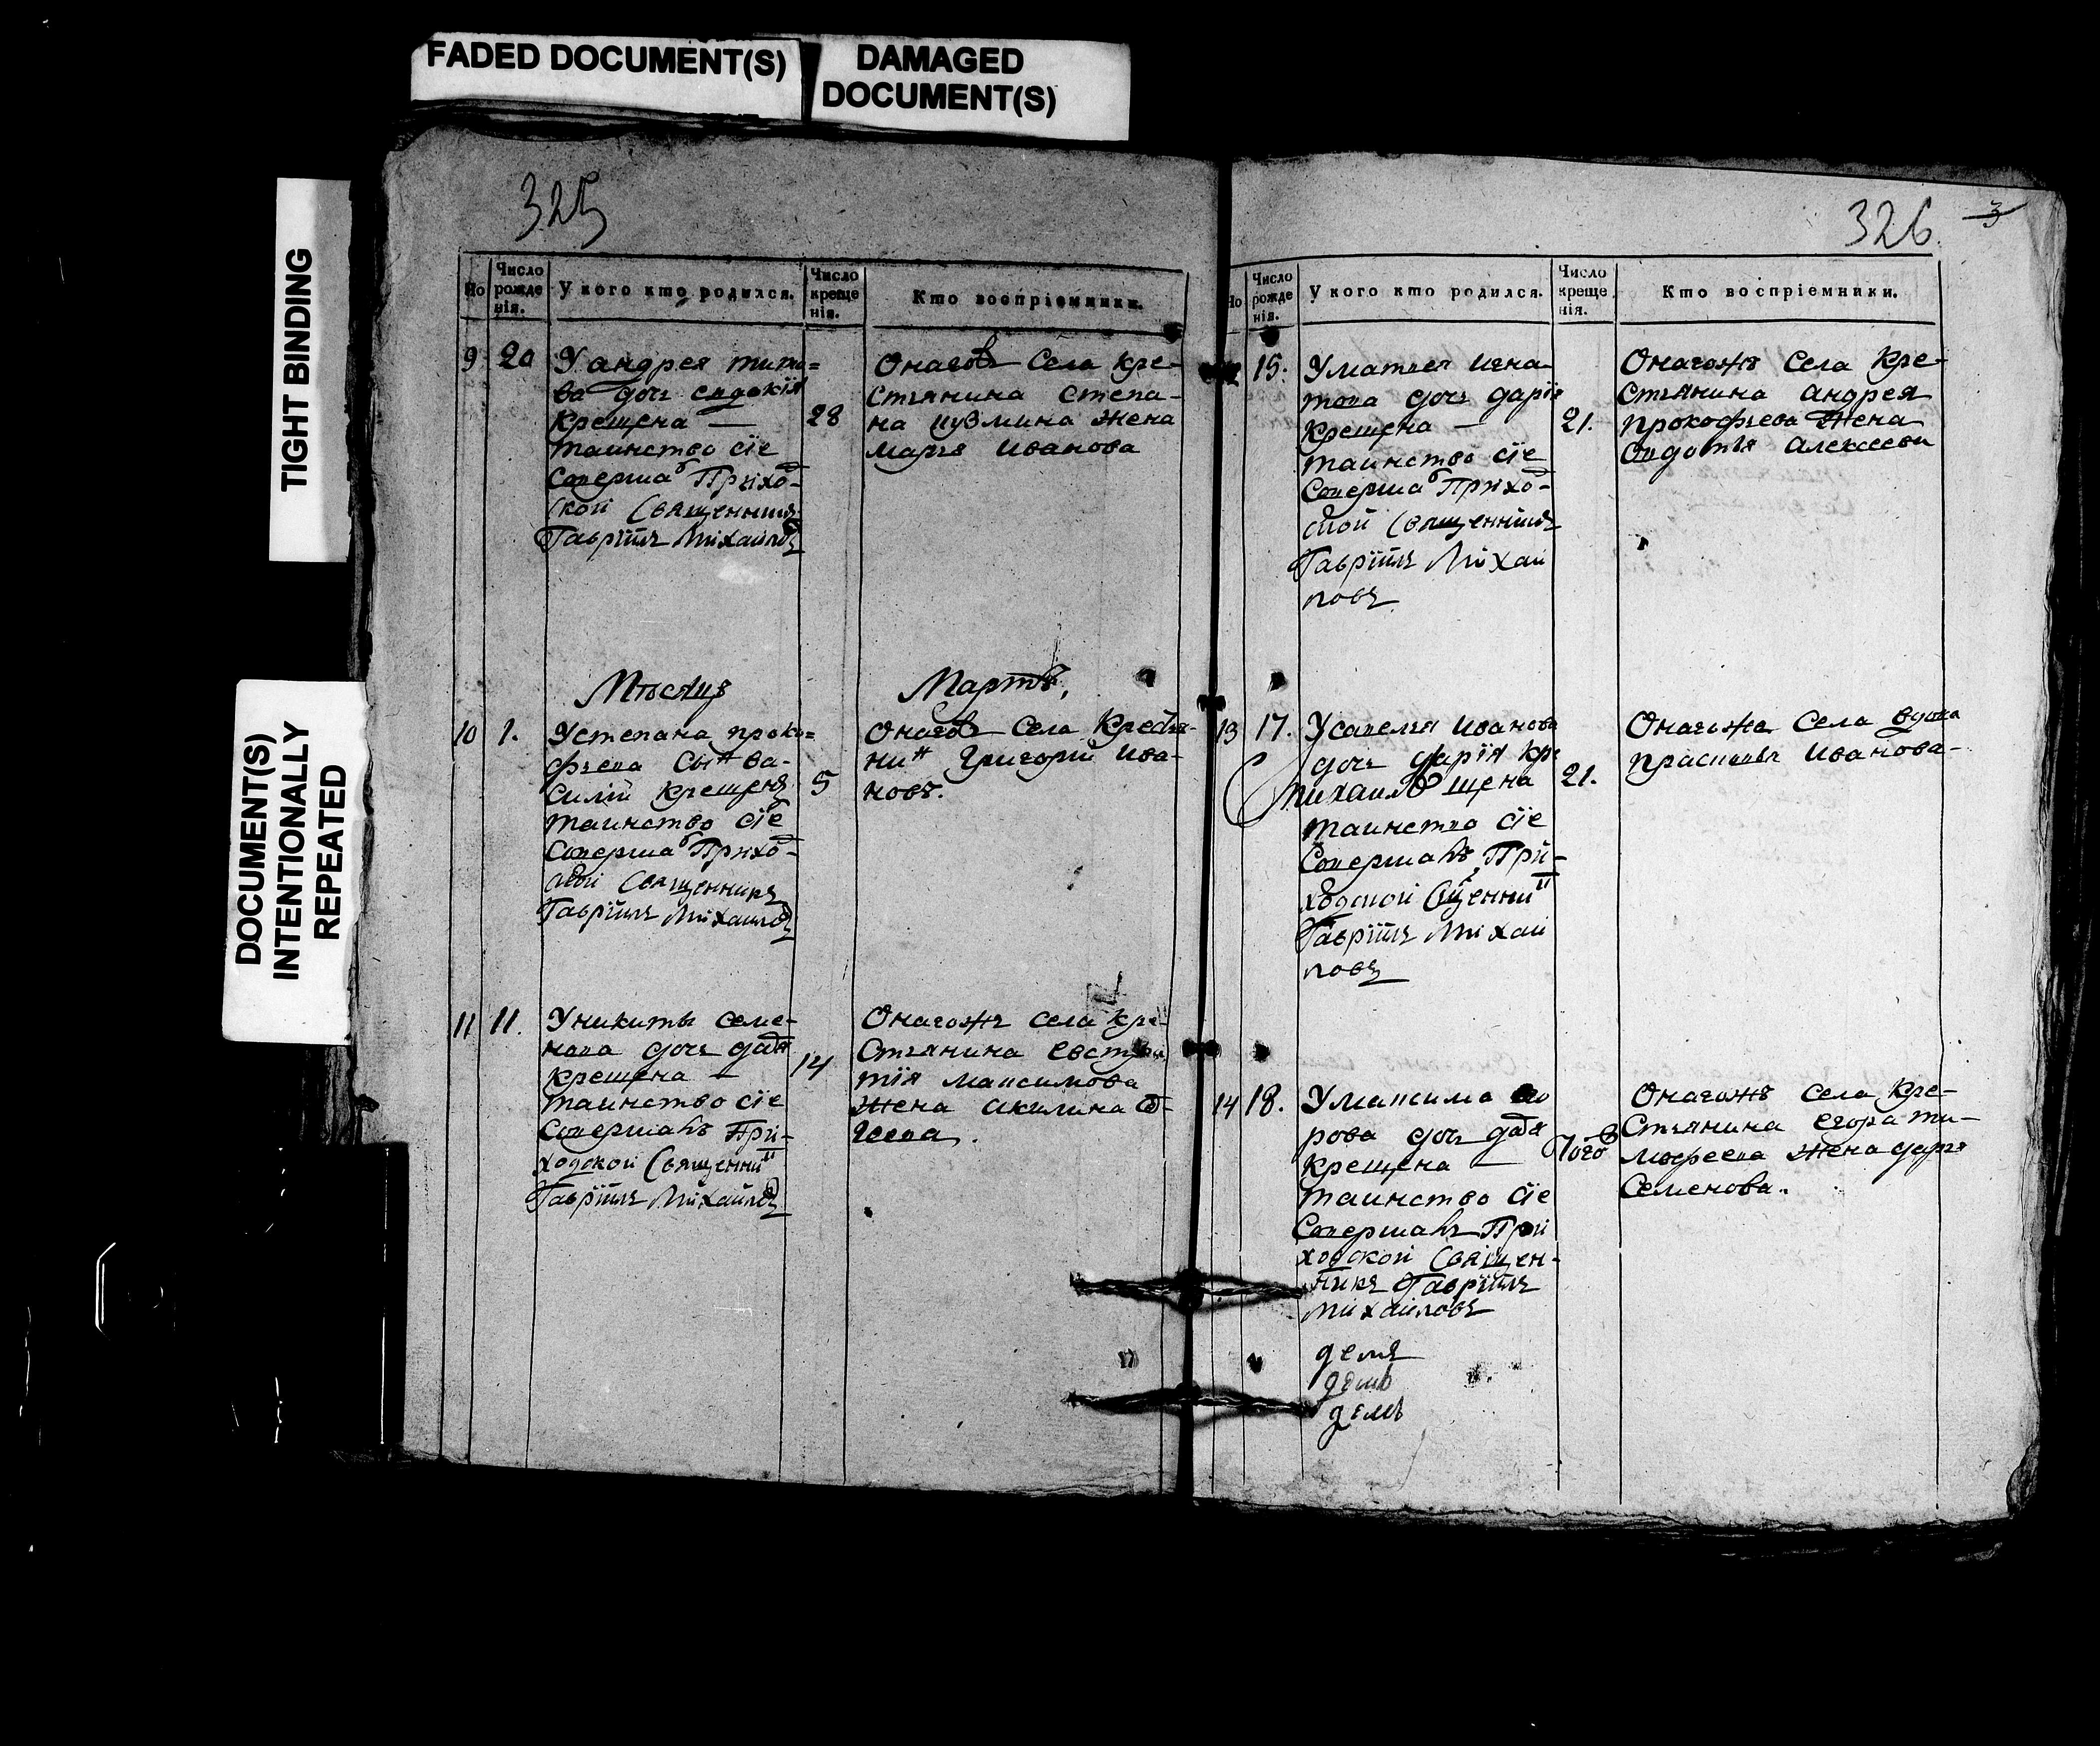 FADED DOCUMENT(S)
DAMAGED
DOCUMENT(S)
TIGHT BINDING
DOCUMENT(S)
INTENTIONALLY
REPEATED
325
Но
Число рожде нія.
У кого кто родился.
Число креще нія.
Кто воспріемники.
9 20
У андрея тито=
ва дочь евдокїя
крещена —
таинство сїе
Соверша Прихо-
ской Священникъ
Гаврїилъ Михайловъ
28
Онагож Села кре-
Стьянина Степа-
на кузмина жена
марья Иванова
Мѣсяцъ Мартъ,
10 1.
У степана проко=
фьева Сынъ ва-
силій крещенъ
таинство сїе
Соверша Прихо-
ской Священникъ
Гаврїилъ Михайловъ
5
Онагож Села Крестья-
нинъ Григорій Ива-
новъ.
11 11.
У никиты семе-
нова дочь дарья
крещена —
таинство сїе
Совершалъ При-
ходской Священникъ
Гаврїилъ Михайловъ
14
Онагожъ села кре-
Стьянина Евстра-
тїя максимова
жена акилина
326
3
Но
Число рожде нія.
У кого кто родился.
Число креще нія.
Кто воспріемники.
15.
У матвея игна
това дочь дарїя
крещена —
таинство сїе
Соверша Прихо-
ской Священникъ
Гаврїилъ Михай
ловъ
21.
Онагожъ Села Кре-
Стьянина андрея
прокофьева жена
Овдотья Алексеева
13 17.
У савелья Иванова
дочь дарїя кре
михайловъ щена
таинство сїе
Совершалъ При-
ходской Сщенникъ
Гаврїилъ Михай
ловъ
21.
Онагожъ Села вдова
прасковья Иванова-
14 18.
У максима его
рова дочь дарья
крещена —
таинство сїе
Совершалъ При
ходской Священ-
никъ Гаврїилъ
михайловъ
Того
Онагожъ Села кре-
Стьянина егора ти-
мофеева жена дарья
Семенова.
демъ
демъ
демъ